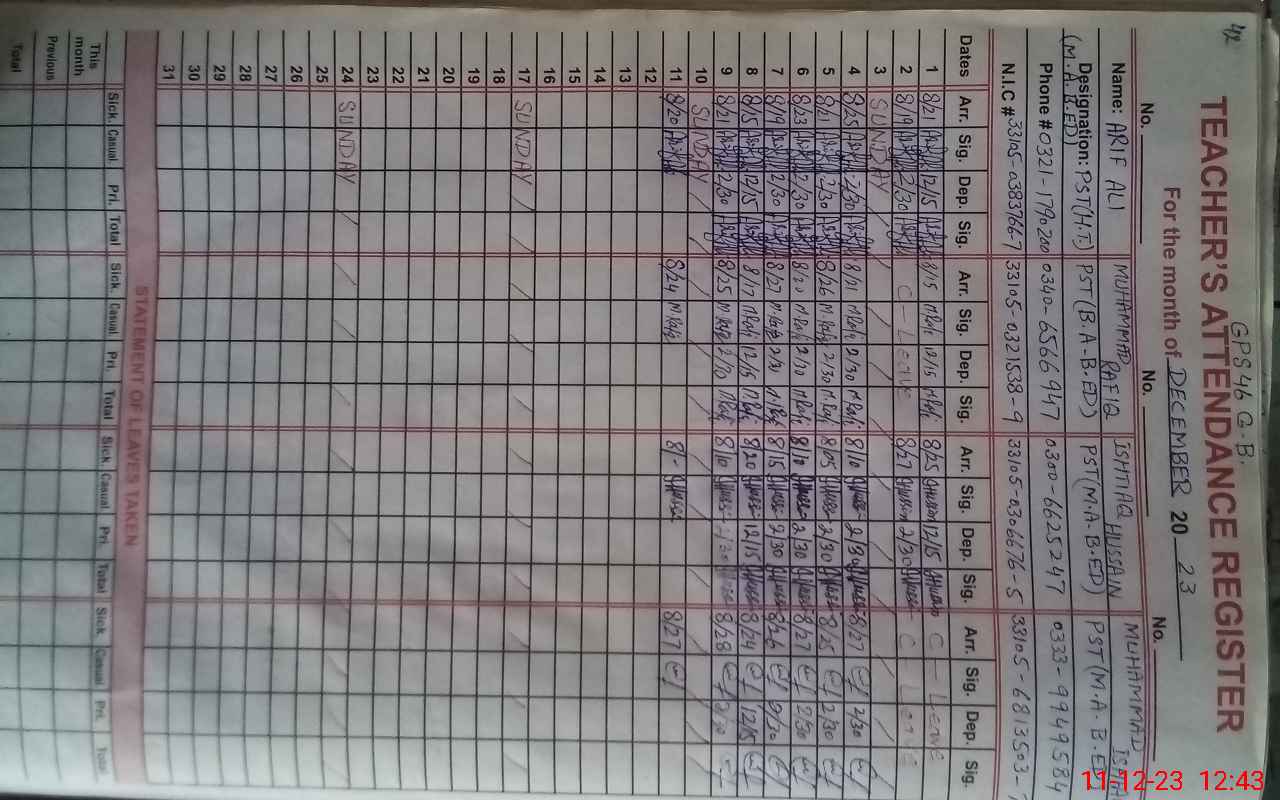 42
GPS 46 G.B.
TEACHER'S ATTENDANCE REGISTER
For the month of DECEMBER 20 23
No. No. No.
Name: ARIF ALI MUHAMMAD RAFIQ ISHTIAQ HUSSAIN MUHAMMAD
Designation: PST(H.T) PST(B.A-B.ED) PST(M.A-B.ED) PST(M.A.B.ED
(M.A.B.ED)
Phone # 0321-1790200 0340-6566947 0300-6625247 0333-9949584
N.I.C # 33105-0383766-7 33105-0321538-9 33105-0306676-5 33105-6813503-
Dates Arr. Sig. Dep. Sig. Arr. Sig. Dep. Sig. Arr. Sig. Dep. Sig. Arr. Sig. Dep. Sig.
1 8/21 12/15 8/15 12/15 8/25 12/15 C - Leave
2 8/19 2/30 C - Leave 8/27 2/30 C - Leave
3 SUNDAY
4 8/25 2/30 8/21 2/30 8/10 2/30 8/27 2/30
5 8/21 2/30 8/26 2/30 8/05 2/30 8/25 2/30
6 8/23 2/30 8/20 2/30 8/10 2/30 8/27 2/30
7 8/19 12/30 8/27 8/15 2/30 8/26
8 8/15 12/15 8/17 12/15 8/20 12/15 8/24 12/15
9 8/21 2/30 8/25 8/10 2/30 8/28 2/30
10 SUNDAY
11 8/20 8/24 8/- 8/27
12
13
14
15
16
17 SUNDAY
18
19
20
21
22
23
24 SUNDAY
25
26
27
28
29
30
31
STATEMENT OF LEAVES TAKEN
Sick. Casual Pri. Total Sick. Casual Pri. Total Sick. Casual Pri. Total Sick Casual Pri. Total
This month
Previous
Total
11-12-23 12:43